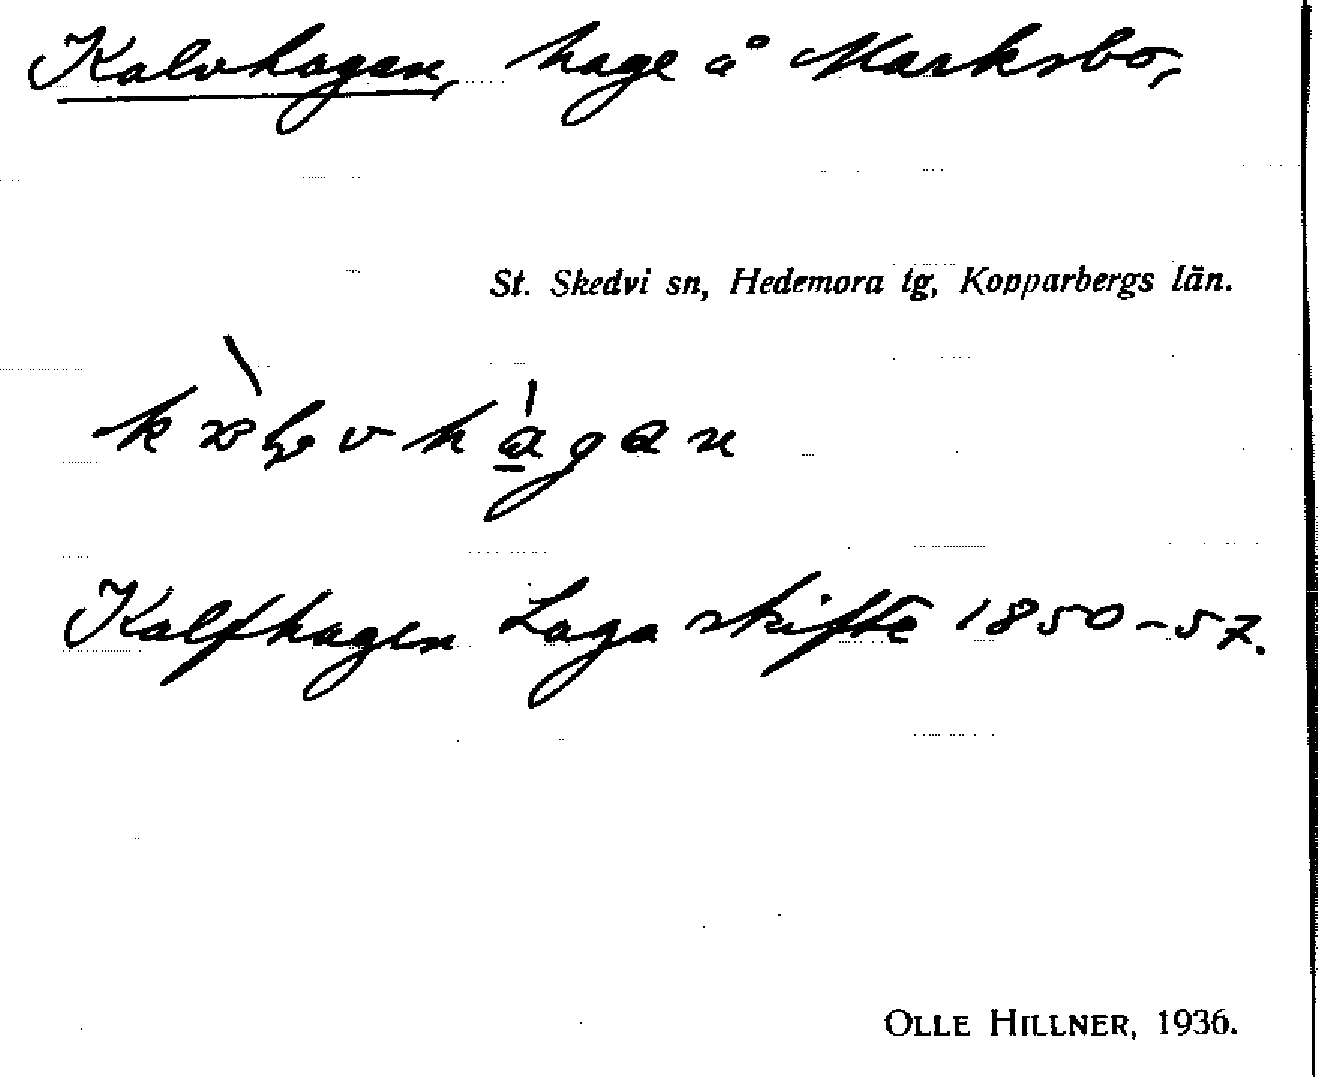 Kalvhagen, hage å Marksbo,
St. Skedvi sn, Hedemora tg, Kopparbergs län.
Kalfhagen Laga skifte 1850-57.
OLLE HILLNER, 1936.